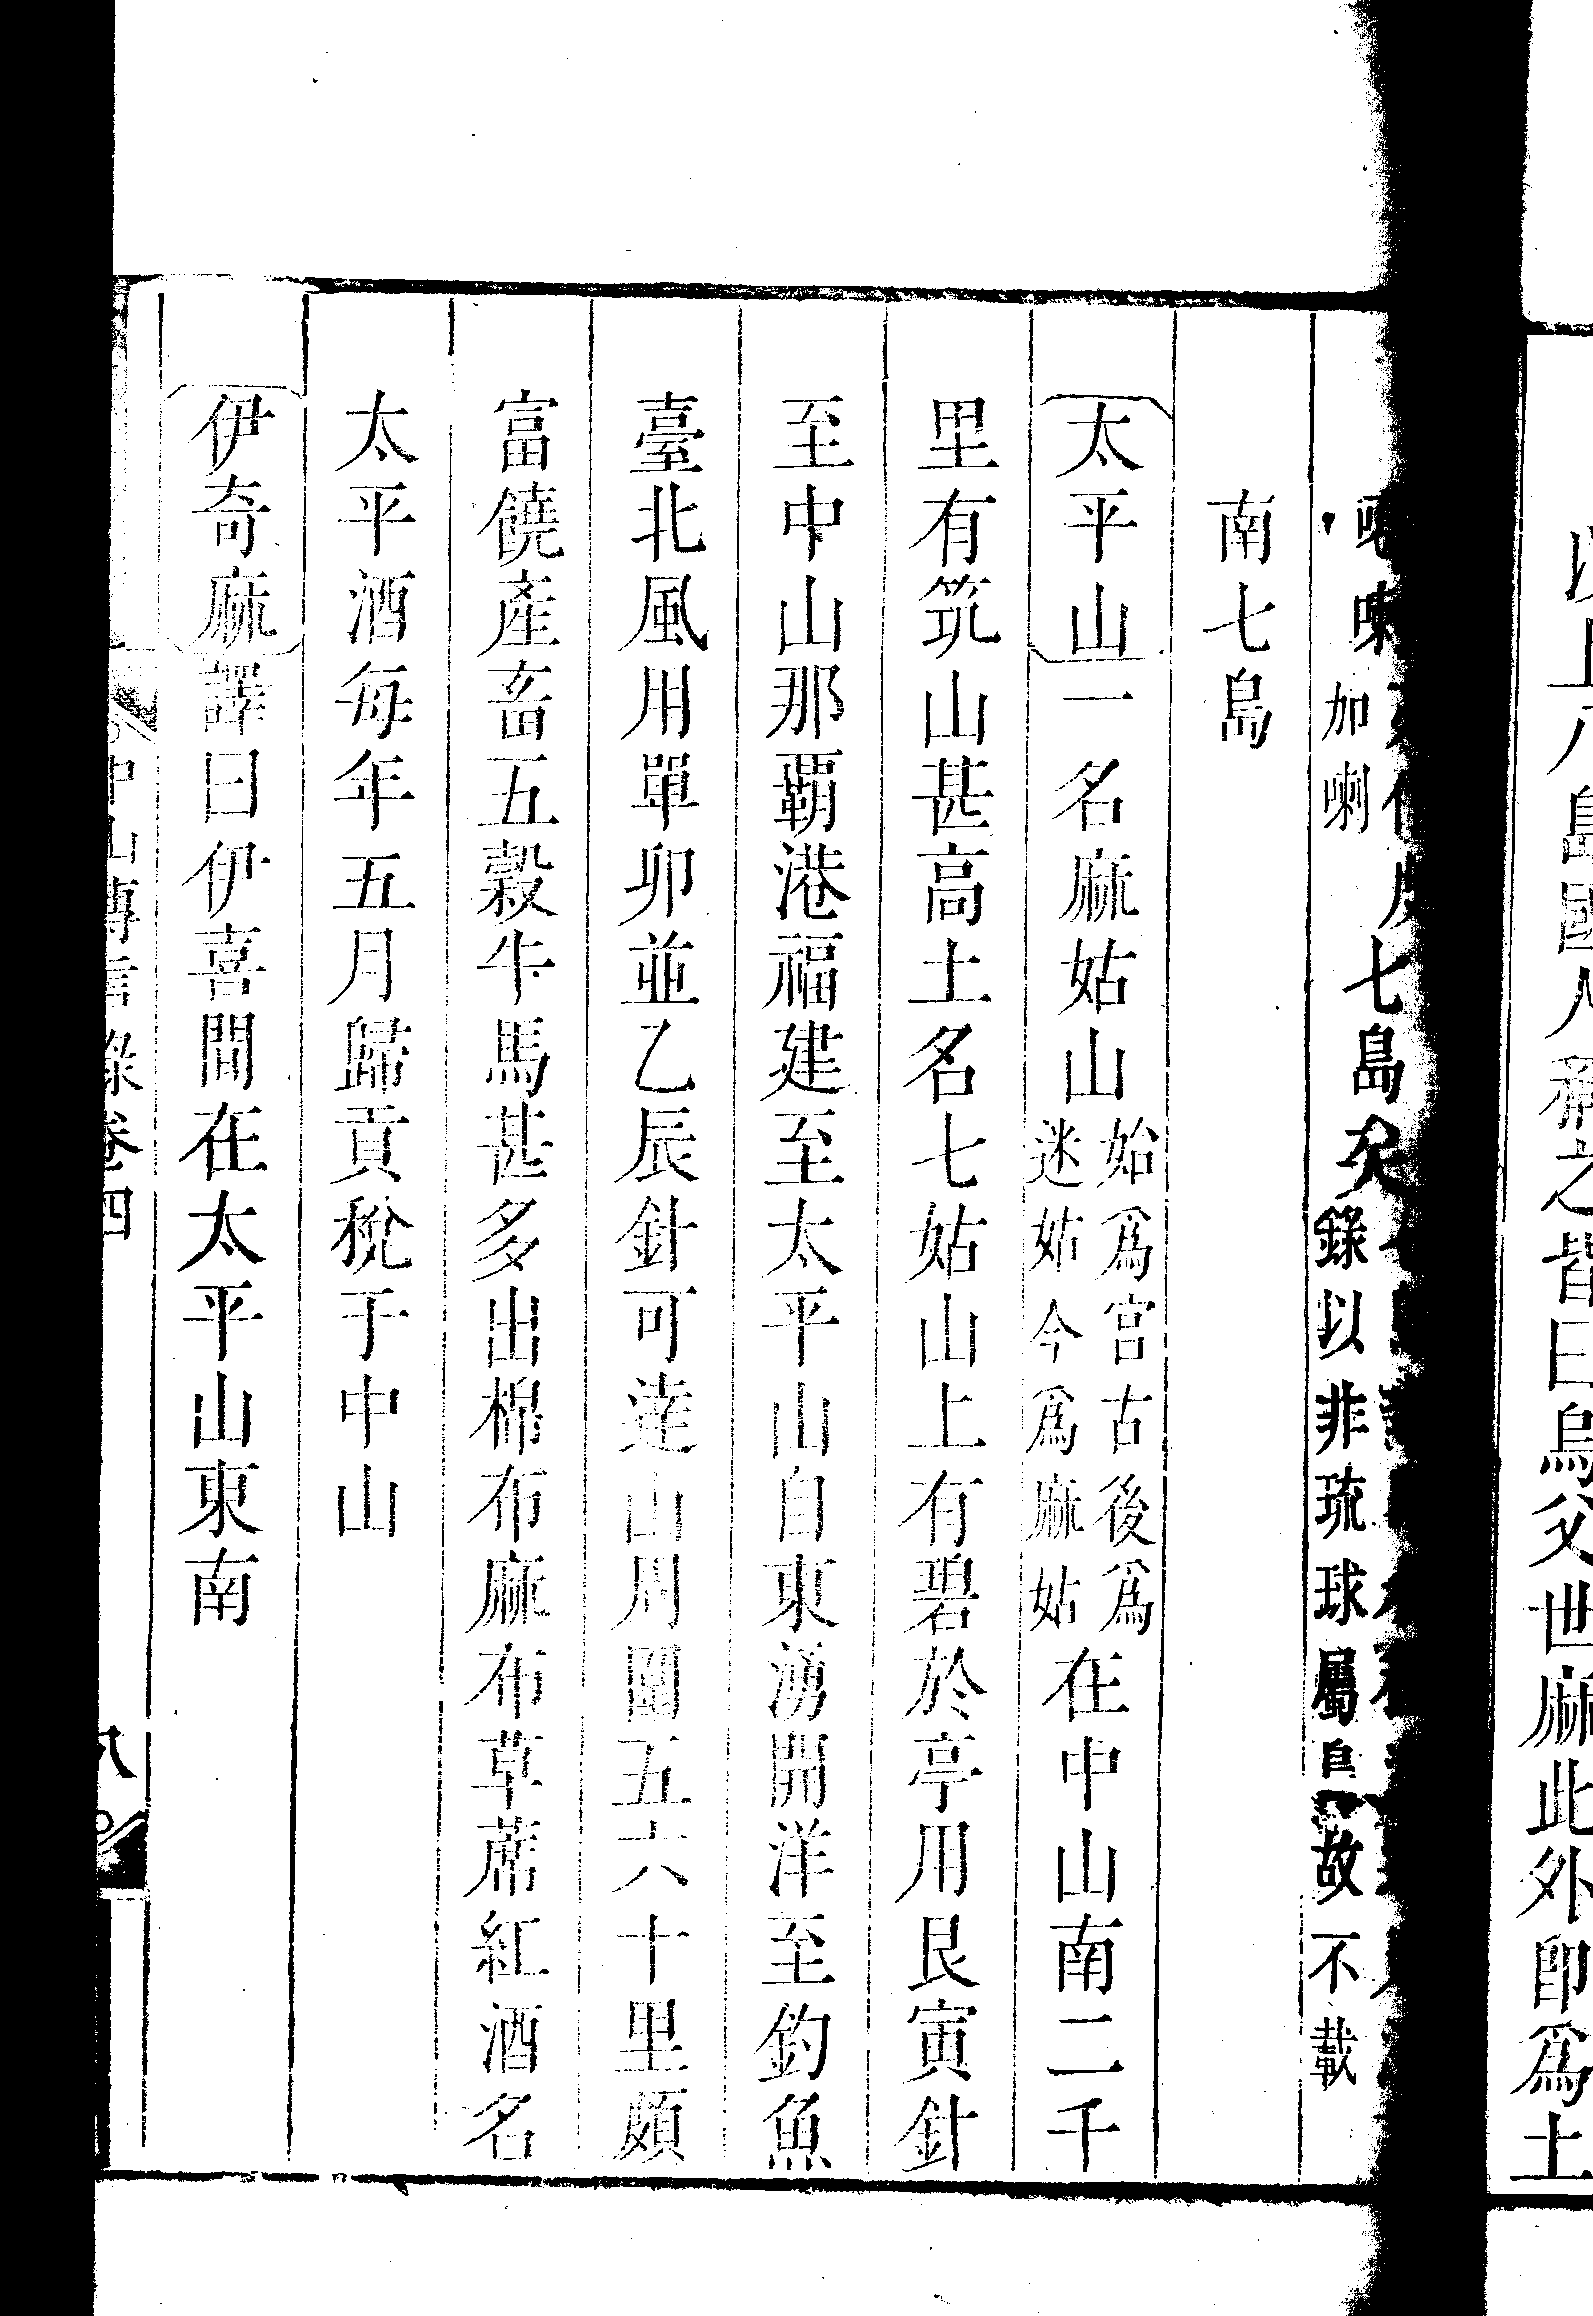 以上八島國人稱之皆曰烏父世麻此外卽爲土
噶喇
七島矣
加喇
錄以非琉球屬島故不載
南七島
太平山一名麻姑山始爲宮古後爲迷姑今爲麻姑在中山南二千
里有筑山甚高土名七姑山山上有碧於亭用艮寅針
至中山那覇港福建至太平山自東湧開洋至釣魚
臺北風用單卯並乙辰針可達山周圍五六十里頗
富饒產畜五穀牛馬甚多出棉布麻布草蓆紅酒名
太平酒每年五月歸貢稅于中山
伊奇麻譯曰伊喜間在太平山東南
中山傳信錄卷四
八